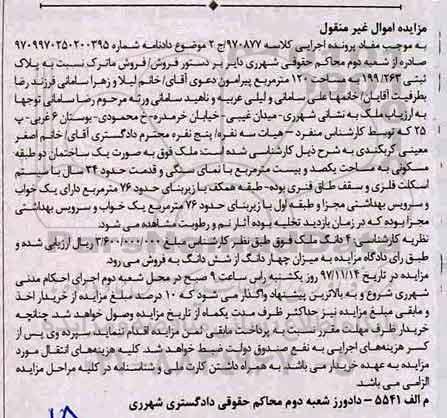 مزایده اموال غیر منقول
به موجب مفاد پرونده اجرایی کلاسه ۹۷۰۸۷۷/ج ۲ موضوع دادنامه شماره ۹۷۰۹۹۷۰۲۵۰۲۰۰۳۹۵
صادره از شعبه دوم محاکم حقوقی شهرری دایر بر دستور فروش/فروش ماترک نسبت به پلاک
ثبتی ۱۹۹/۲۶۳ به مساحت ۱۲۰ مترمربع پیرامون دعوی آقای/خانم لیلا و زهرا سامانی فرزند رضا
بطرفیت آقایان/خانمها علی سامانی و لیلی غریبه و ناهید سامانی ورثه مرحوم رضا سامانی توجها
به ارزیاب ملک به نشانی شهرری-میدان غیبی-خیابان خرمدره-خ محمودی-بوستان ۶ غربی-پ
۲۵ که توسط کارشناس منفرد - هیات سه نفره/پنج نفره محترم دادگستری آقای/خانم اصغر
معینی کربکندی به شرح ذیل کارشناسی شده است: ملک فوق به صورت یک ساختمان دو طبقه
مسکونی به مساحت یکصد و بیست مترمربع با نمای سنگی و قدمت حدود ۲۴ سال با سیستم
اسکلت فلزی و سقف طاق قنبری بوده-طبقه همکف با زیربنای حدود ۷۶ مترمربع دارای یک خواب
و سرویس بهداشتی مجزا و طبقه اول با زیربنای حدود ۷۶ مترمربع یک خواب و سرویس بهداشتی
مجزا بوده که در زمان بازدید تخلیه بوده آثار نم و رطوبت مشاهده می شود.
نظریه کارشناسی: ۴ دانگ ملک فوق طبق نظر کارشناس مبلغ ۳/۶۰۰/۰۰۰/۰۰۰ ریال ارزیابی شده و
طبق رای دادگاه مزایده به میزان چهار دانگ از شش دانگ به فروش می رود.
مزایده در تاریخ ۹۷/۱۱/۱۴ روز یکشنبه راس ساعت ۹ صبح در محل شعبه دوم اجرای احکام مدنی
شهرری شروع و به بالاترین پیشنهاد واگذار می شود که ۱۰ درصد مبلغ مزایده از خریدار اخذ
و مابقی مبلغ مزایده نیز حداکثر ظرف مدت یکماه از تاریخ مزایده وصول خواهد شد چنانچه
خریدار ظرف مهلت مقرر نسبت به پرداخت مابقی ثمن مزایده اقدام ننماید سپرده وی پس از
کسر هزینه‌های اجرایی به نفع صندوق دولت ضبط خواهد شد. کلیه هزینه‌های انتقال مورد
مزایده به عهده خریدار می باشد. به همراه داشتن کارت ملی و شناسنامه در کلیه مراحل مزایده
الزامی می باشد.
م الف ۵۵۴۱ - دادورز شعبه دوم محاکم حقوقی دادگستری شهرری